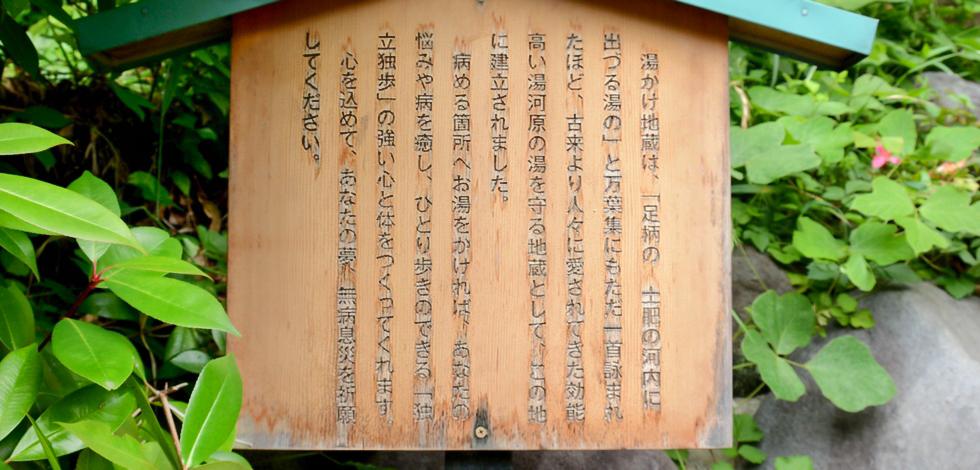 湯かけ地蔵は、「足柄の 土肥の河内に
出づる湯の」と万葉集にもただ一首詠まれ
たほど、古来より人々に愛されてきた効能
高い湯河原の湯を守る地蔵として、この地
に建立されました。
病める箇所へお湯をかければ、あなたの
悩みや病を癒し、ひとり歩きのできる「独
立独歩」の強い心と体をつくってくれます。
心を込めて、あなたの夢、無病息災を祈願
してください。